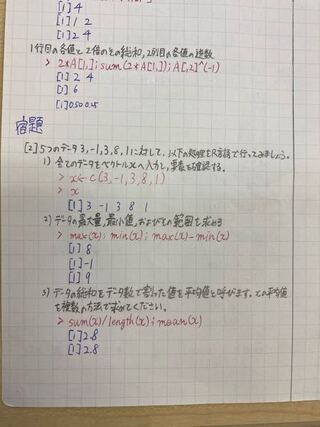 [1] 4
[1] 1 2
[1] 2 4
1行目の各値と2倍のその総和, 2列目の各値の逆数
> 2*A[1,]; sum(2*A[1,]); A[,2]^(-1)
[1] 2 4
[1] 6
[1] 0.50 0.25
宿題
[2] 5つのデータ3,-1,3,8,1に対して, 以下の処理をR言語で行ってみましょう。
1) 全てのデータをベクトルxへ入力し, 要素を確認する。
> x<-c(3,-1,3,8,1)
> x
[1] 3 -1 3 8 1
2) データの最大量, 最小値, およびその範囲を求める
> max(x); min(x); max(x)-min(x)
[1] 8
[1] -1
[1] 9
3) データの総和をデータ数で割った値を平均値と呼びます。この平均値
を複数の方法で求めてください。
> sum(x)/length(x); mean(x)
[1] 2.8
[1] 2.8